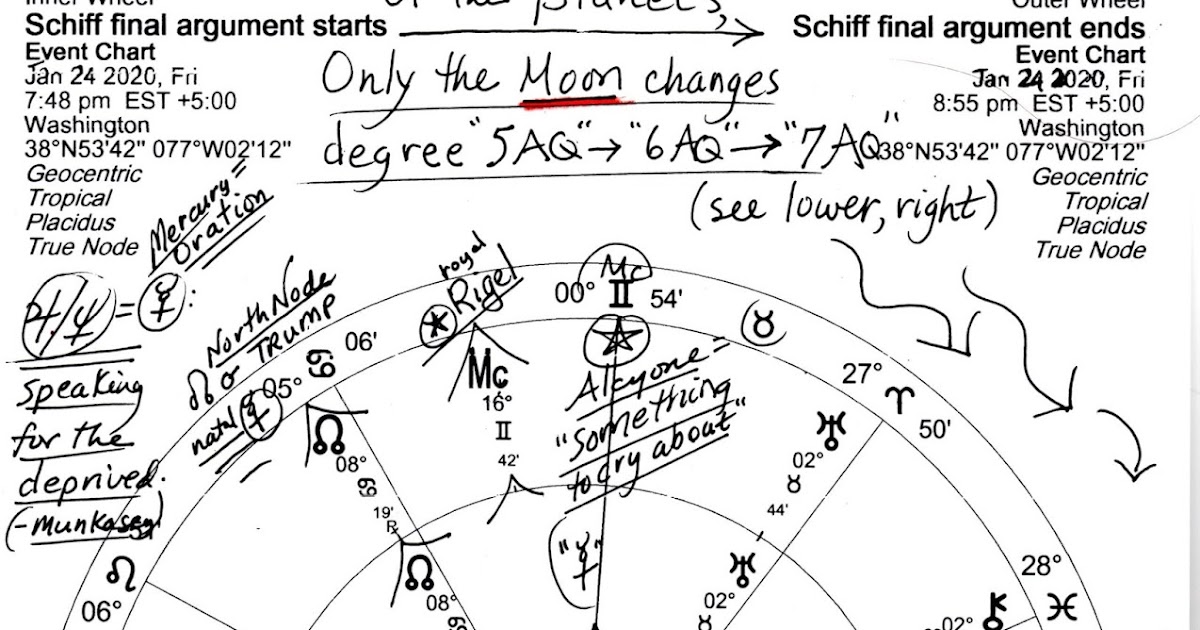 Inner Wheel
Schiff final argument starts
Event Chart
Jan 24 2020, Fri
7:48 pm EST +5:00
Washington
38°N53'42" 077°W02'12"
Geocentric
Tropical
Placidus
True Node
of the planets,
Only the Moon changes
degree "5AQ"→"6AQ"→"7AQ"
(see lower, right)
Outer Wheel
Schiff final argument ends
Event Chart
Jan 24 2020, Fri
8:55 pm EST +5:00
Washington
38°N53'42" 077°W02'12"
Geocentric
Tropical
Placidus
True Node
Mercury =
Oration
♃/♆ = ☿:
speaking
for the
deprived.
(-Munkasey)
☊ North Node
☌ TRUMP
natal ☿
05° ♋ 06'
royal
* Rigel
Mc
16°
♊
42'
Mc
00° ♊ 54'
Alcyone =
"something
to cry about"
"☿"
♉
27° ♈ 50'
♅
02°
♉
44'
♅
02°
♉
☊
08°
♋
19'
R
☊
08°
♋
♌
06°
28°
♓
⚷
02°